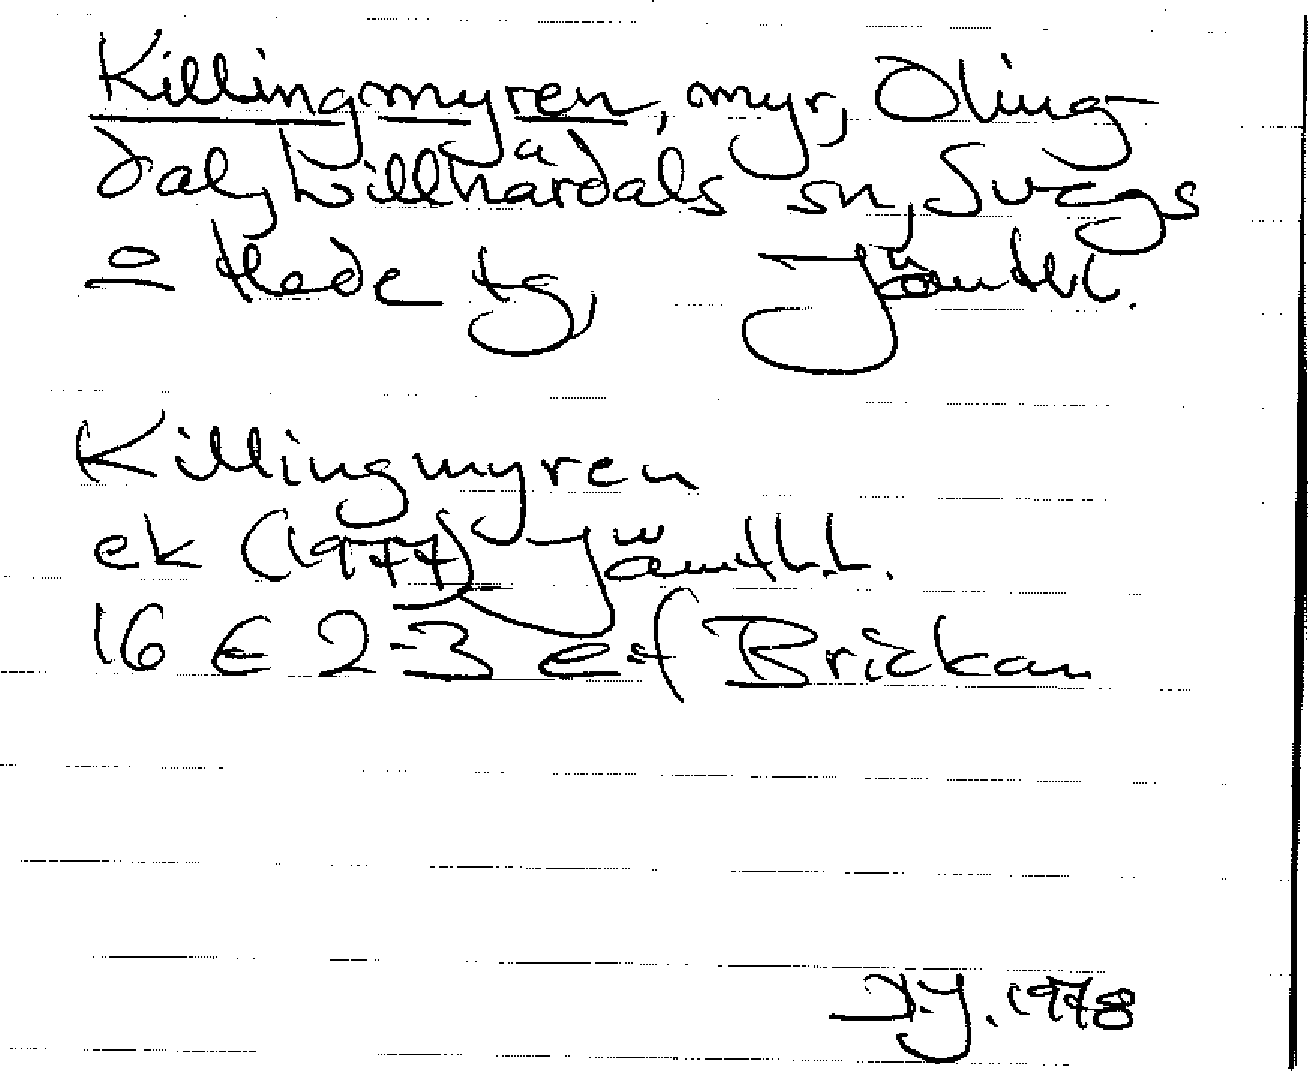 Killingmyren, myr, Oling-
dal, Lillhärdals sn, Svegs
o Hede tg, Jämtl.l.
Killingmyren
ek (1977) Jämtl.l.
16 E 2-3 e-f Brickan
1978